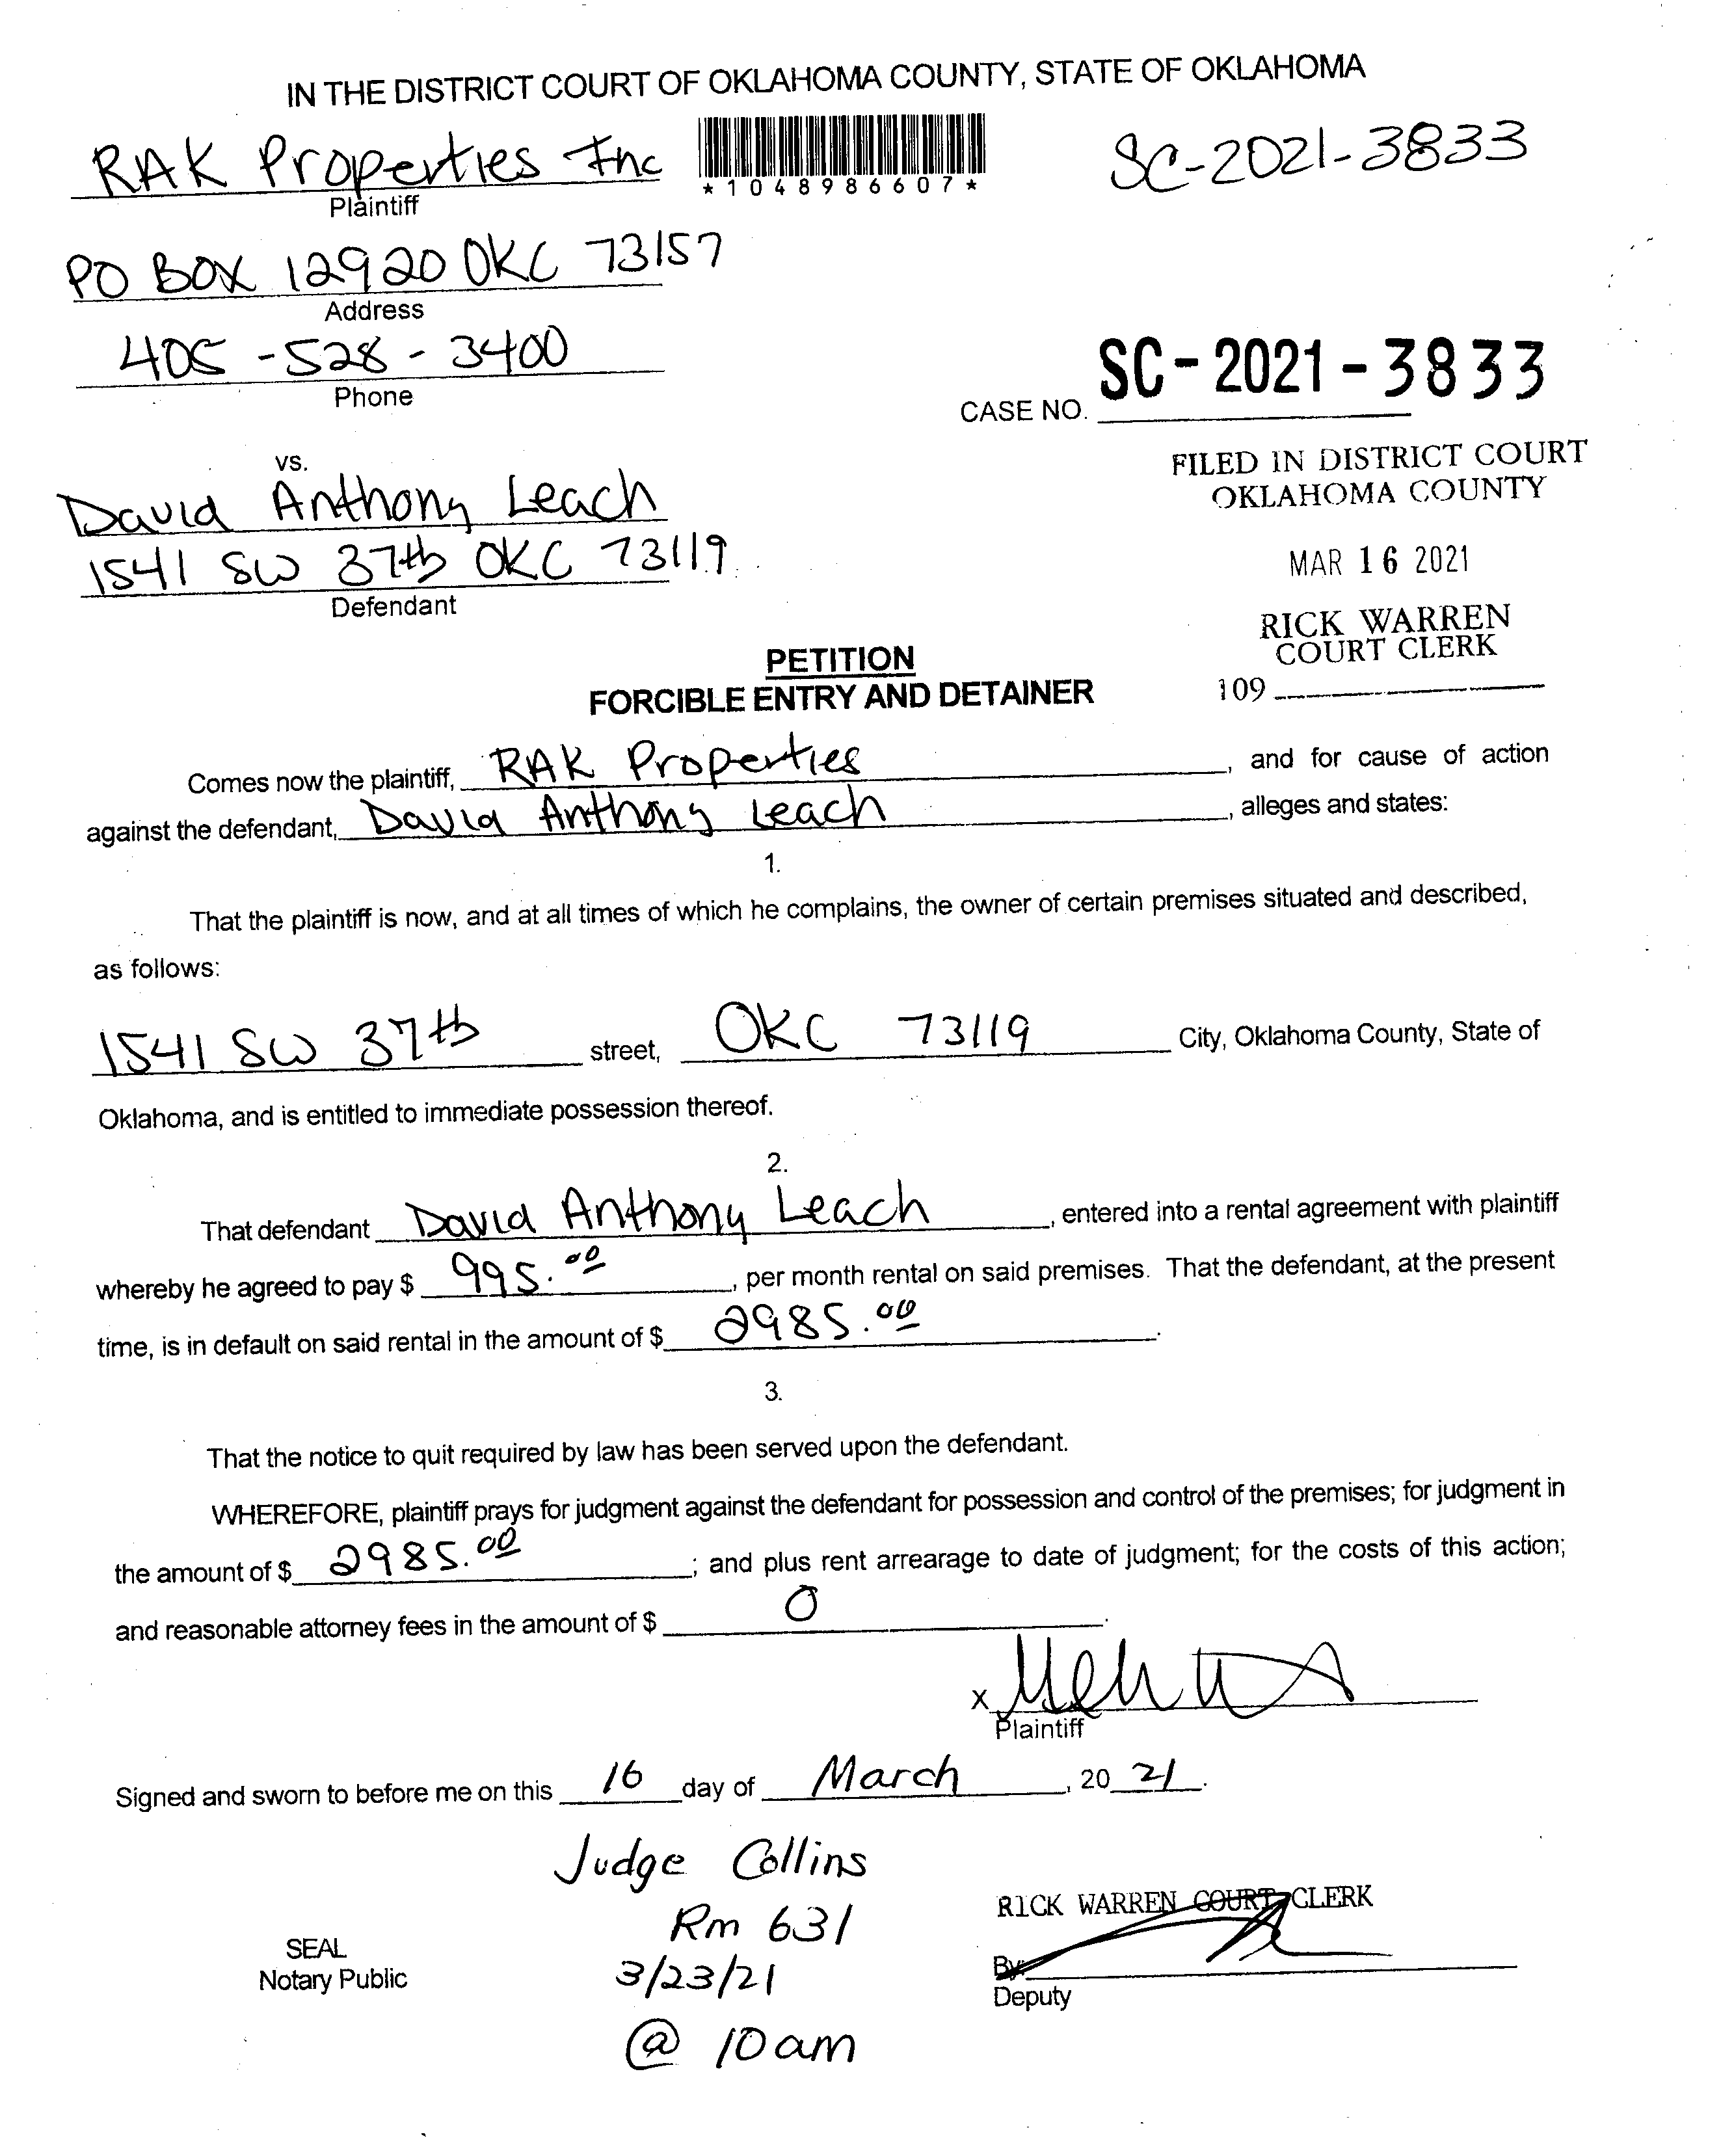 IN THE DISTRICT COURT OF OKLAHOMA COUNTY, STATE OF OKLAHOMA
RAK Properties Inc
*1048986607*
SC-2021-3833
Plaintiff
PO BOX 12920 OKC 73157
Address
405-528-3400
Phone
CASE NO. SC-2021-3833
vs.
FILED IN DISTRICT COURT
OKLAHOMA COUNTY
David Anthony Leach
1541 SW 37th OKC 73119
Defendant
MAR 16 2021
RICK WARREN
COURT CLERK
109
PETITION
FORCIBLE ENTRY AND DETAINER
Comes now the plaintiff, RAK Properties, and for cause of action
against the defendant, David Anthony Leach, alleges and states:
1.
That the plaintiff is now, and at all times of which he complains, the owner of certain premises situated and described,
as follows:
1541 SW 37th street, OKC 73119 City, Oklahoma County, State of
Oklahoma, and is entitled to immediate possession thereof.
2.
That defendant David Anthony Leach, entered into a rental agreement with plaintiff
whereby he agreed to pay $ 995.00, per month rental on said premises. That the defendant, at the present
time, is in default on said rental in the amount of $ 2985.00.
3.
That the notice to quit required by law has been served upon the defendant.
WHEREFORE, plaintiff prays for judgment against the defendant for possession and control of the premises; for judgment in
the amount of $ 2985.00; and plus rent arrearage to date of judgment; for the costs of this action;
and reasonable attorney fees in the amount of $ 0.
X
Plaintiff
Signed and sworn to before me on this 16 day of March, 20 21.
Judge Collins
Rm 631
3/23/21
@ 10am
SEAL
Notary Public
RICK WARREN COURT CLERK
By:
Deputy